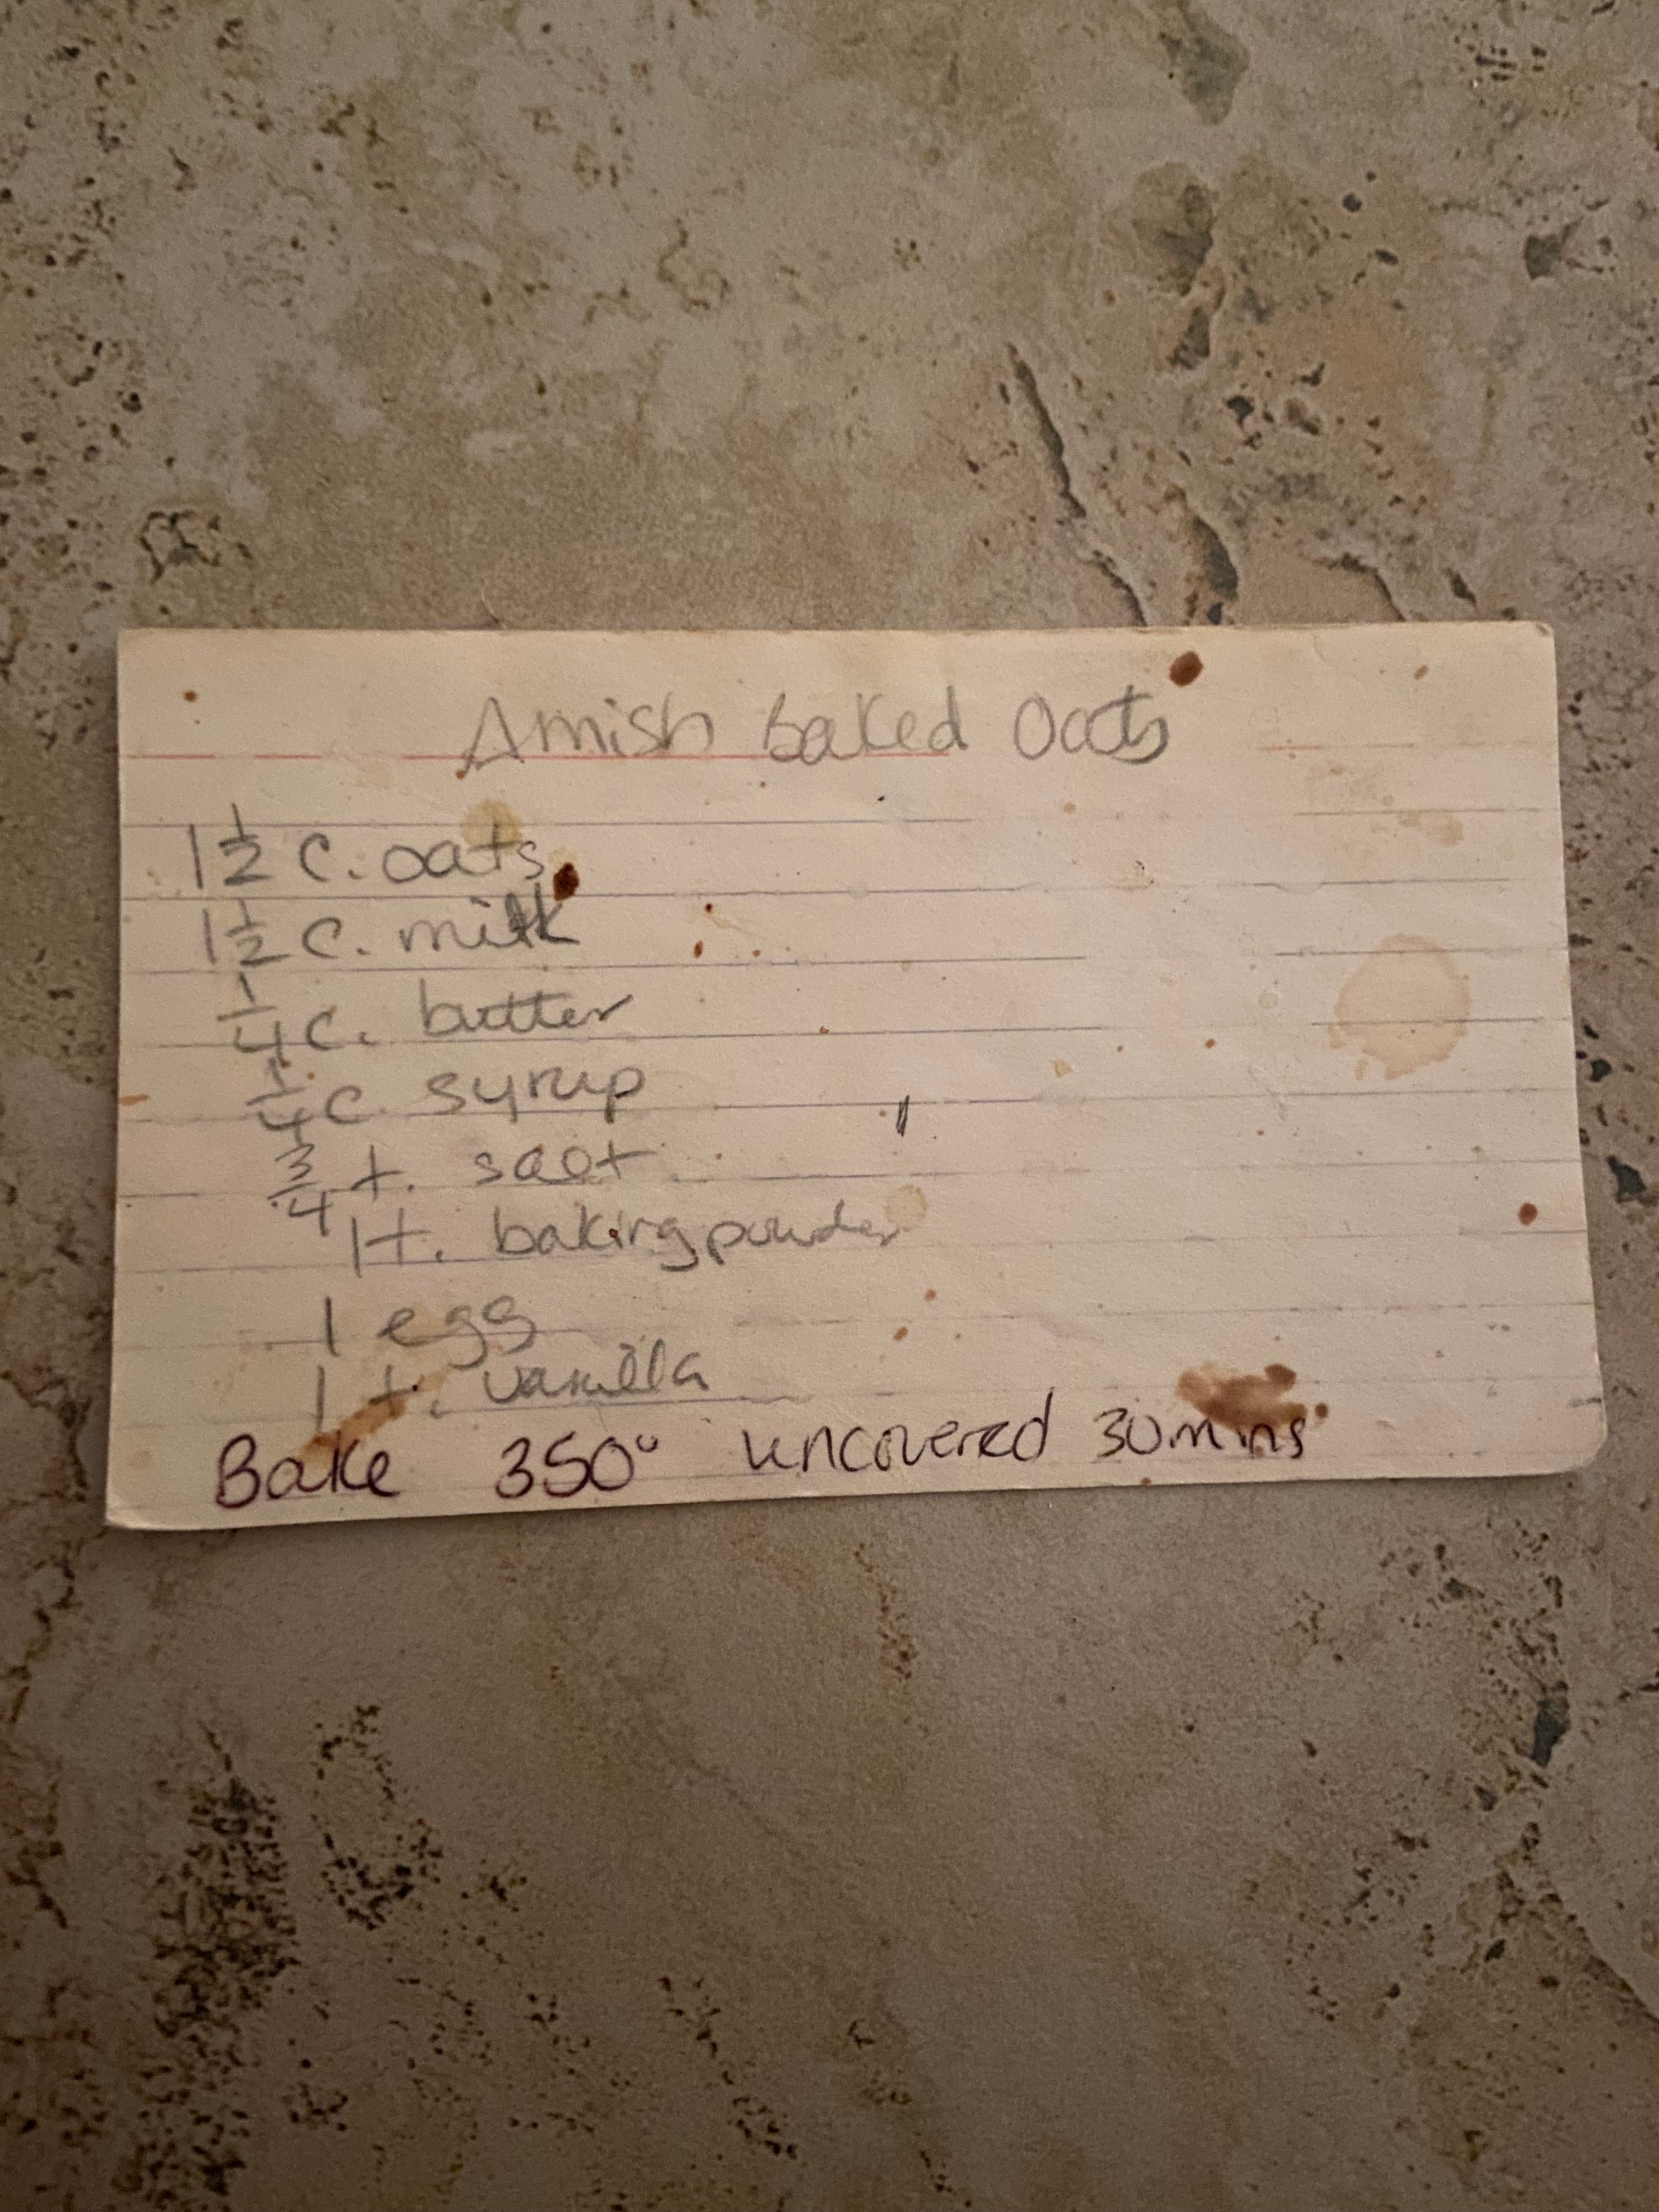 Amish Baked Oats
1 1/2 c. oats
1 1/2 c. milk
1/4 c. butter
1/4 c syrup
3/4 t. salt
1 t. baking powder
1 egg
1 t. vanilla
Bake 350° uncovered 30 mins